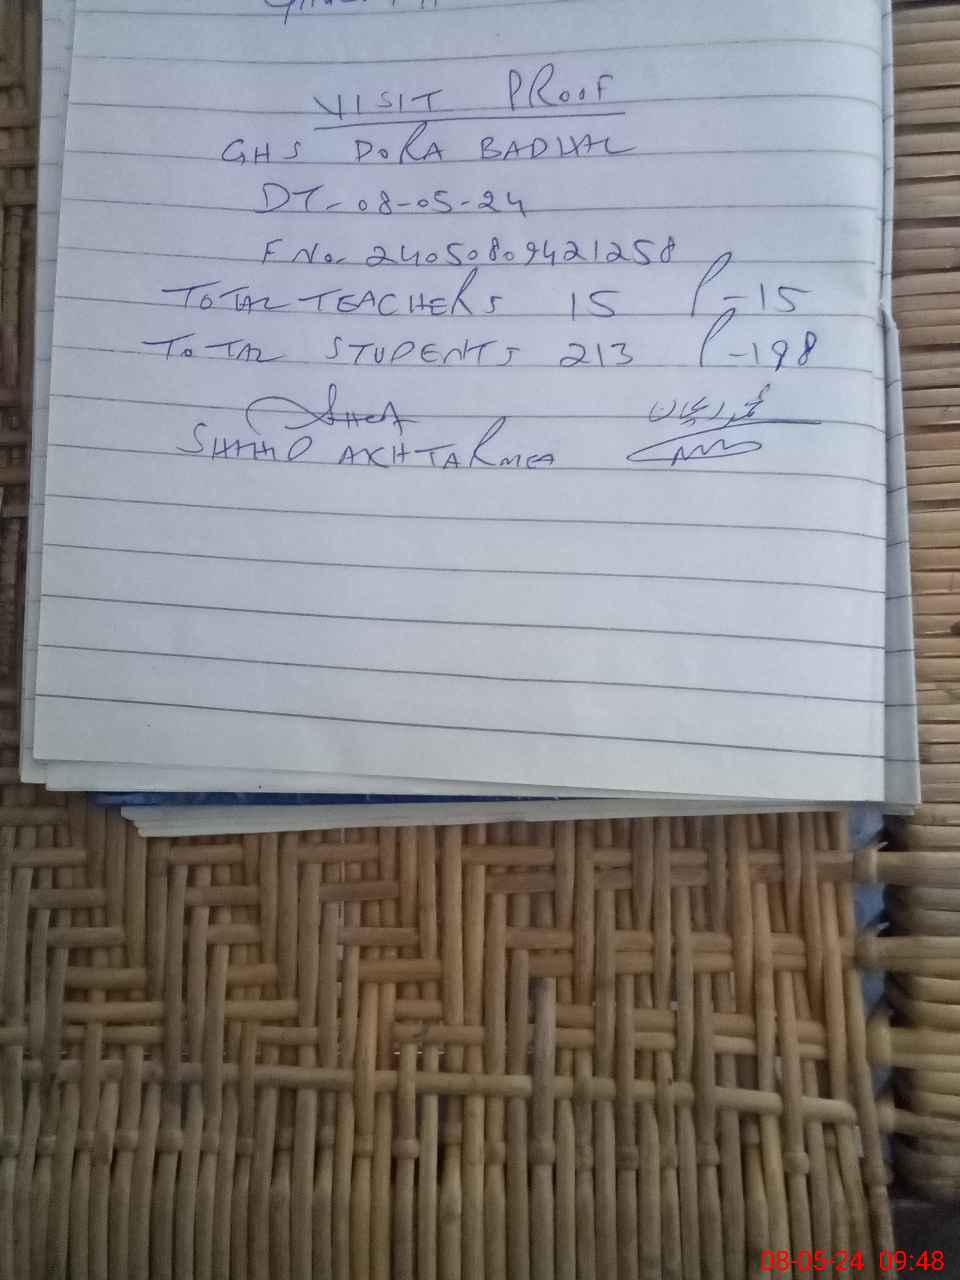 VISIT PROOF
GHS DORA BADHAL
DT- 08-05-24
F No. 24050809421258
TOTAL TEACHERS 15 P-15
TOTAL STUDENTS 213 P-198
SHAHID AKHTAR MEA
08-05-24 09:48